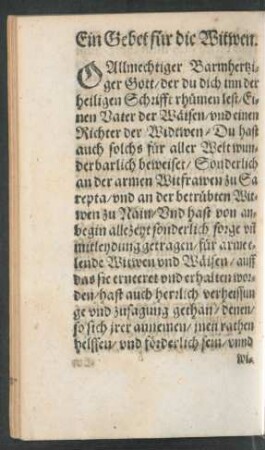 Ein Gebet für die Witwen.
O Allmechtiger Barmhertzi-
ger Gott/ der du dich inn der
heiligen Schrifft rhümen lest/ Ei-
nen Vater der Wäisen/ vnd einen
Richter der Widtwen/ Du hast
auch solchs für aller Welt wun-
derbarlich beweiset/ Sonderlich
an der armen Witfrawen zu Sa-
repta/ vnd an der betrübten Wit-
wen zu Nain/ Vnd hast von an-
begin allezeyt sonderlich sorge vñ
mitleydung getragen/ für arme e-
lende Witwen vnd Wäisen/ auff
das sie erneeret vnd erhalten wor-
den/ hast auch herrlich verheissun
ge vnd zusagung gethan/ denen/
so sich jrer annemen/ jnen rathen
helffen/ vnd förderlich sein/ vnnd